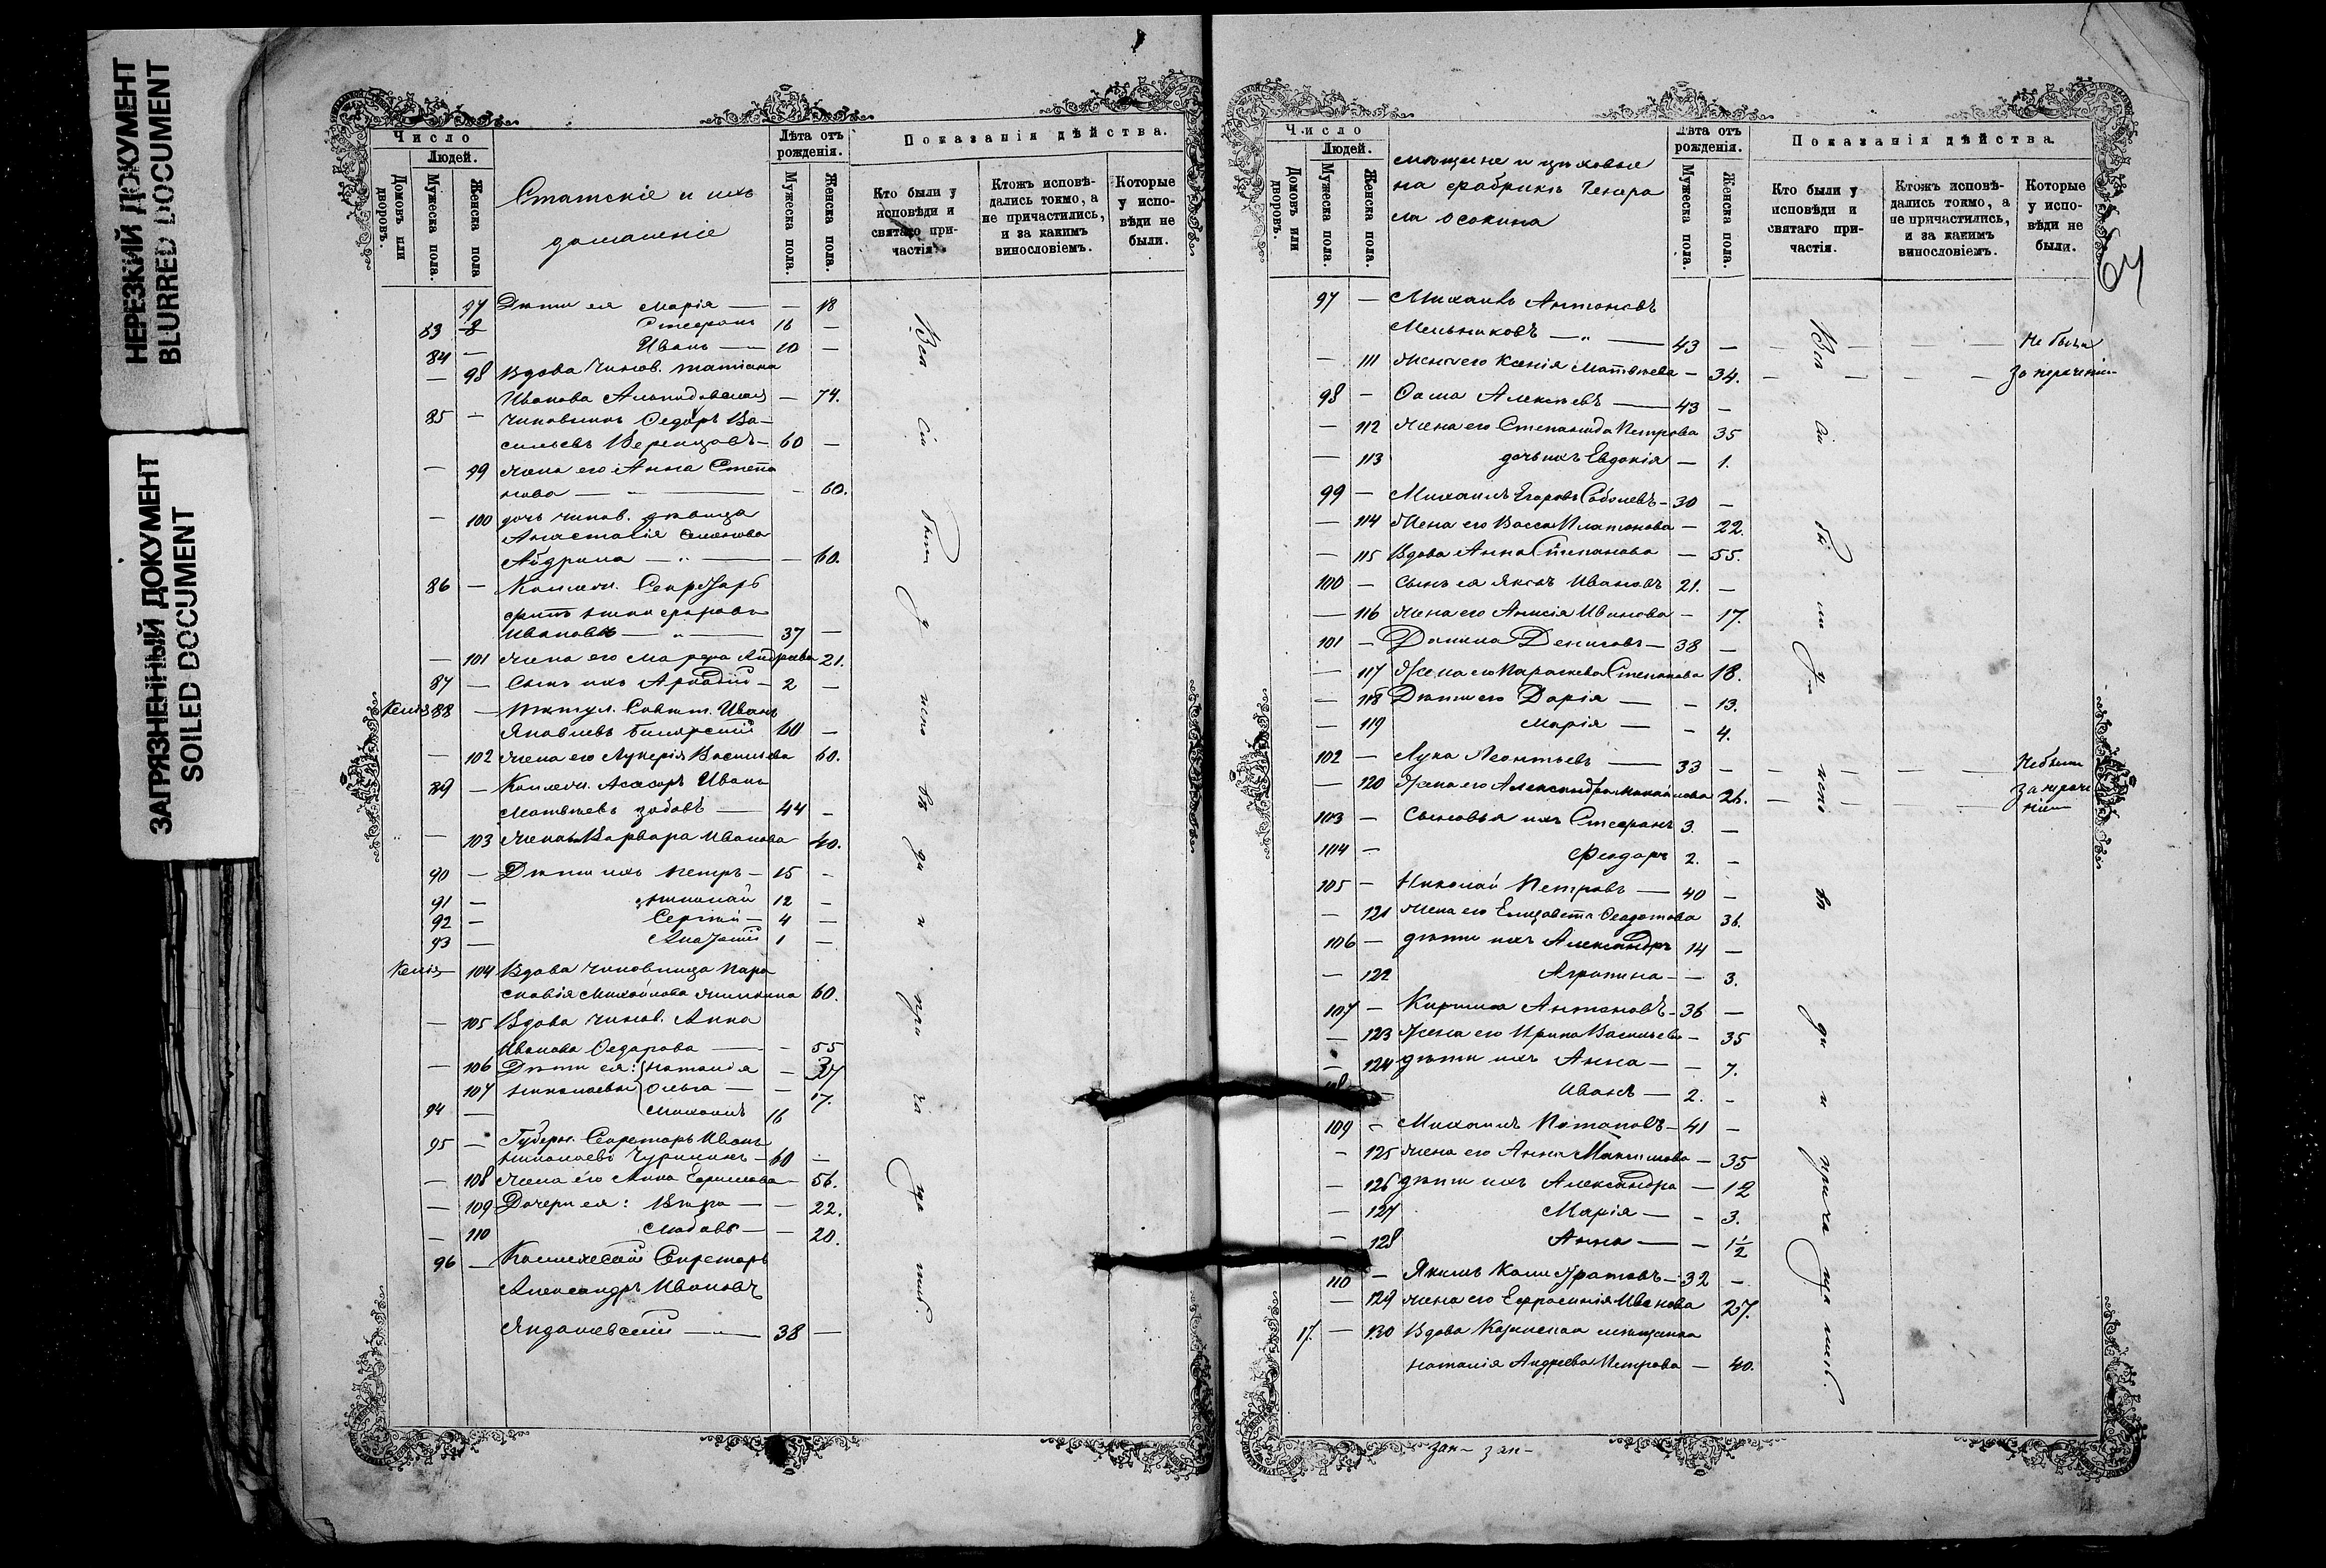 НЕРЕЗКИЙ ДОКУМЕНТ
BLURRED DOCUMENT
ЗАГРЯЗНЕННЫЙ ДОКУМЕНТ
SOILED DOCUMENT
Число
Людей.
Домовъ или дворовъ.
Мужеска пола.
Женска пола
Статскіе и ихъ
домашніе
Лѣта отъ рожденія.
Мужеска пола.
Женска пола.
Показанія дѣйства.
Кто были у исповѣди и святаго причастія.
Ктожъ исповѣдались токмо, а не причастились, и за какимъ винословіемъ.
Которые у исповѣди не были.
97 Дѣти ея Марія — — 18
83 Стефанъ 16 —
84 — Иванъ — 10 —
— 98 Вдова чинов. Татіана
Иванова — 74.
85 — Чиновникъ Ѳедоръ Ва-
сильевъ — 60 —
— 99 Жена его Анна Степа
нова — — 60.
— 100 дочь чинов. дѣвица
Анастасія Семенова
— — 60.
86 — Коллеж. Секретарь
Ивановъ — 37 —
— 101 Жена его Марѳа Андреева 21.
87 — Сынъ ихъ Аркадій — 2 —
Келія 88 — Титул. Совѣт. Иванъ
Яковлевъ Билярскій 60 —
— 102 Жена его Лукерія Васильева 60.
89 — Коллеж. Асесоръ Иванъ
Матвѣевъ Зобовъ — 44 —
— 103 Жена его Варвара Иванова 40.
90 — Дѣти ихъ Петръ — 15 —
91 — Николай 12 —
92 — Сергѣй — 4 —
93 — Анатолій 1 —
Келія — 104 Вдова чиновница Пара
сковія Михайлова 60.
— 105 Вдова чинов. Анна
Иванова Ѳедорова — — 55
— 106 Дѣти ея: Наталія — 37
107 Николаевы Ольга — — 17.
94 — Михаилъ 16
95 — Губерн. Секретарь Иванъ
Николаевъ Чуринъ — 60 —
— 108 Жена его Анна Ефимова — 56.
— 109 Дочери ея: Вѣра — — 22.
— 110 Любовь — — 20.
96 — Коллежскій Секретарь
Александръ Ивановъ
Яндашевскій — 38 —
Всѣ сіи были у исповѣди и причащались.
Число
Людей.
Домовъ или дворовъ.
Мужеска пола.
Женска пола.
мѣщане и цѣховые
на фабрикѣ Генера
ла Осокина
Лѣта отъ рожденія.
Мужеска пола.
Женска пола.
Показанія дѣйства.
Кто были у исповѣди и святаго причастія.
Ктожъ исповѣдались токмо, а не причастились, и за какимъ винословіемъ.
Которые у исповѣди не были.
64
97 — Михаилъ Антоновъ
Мельниковъ — 43 — Не были
— 111 Жена его Ксенія Матвѣева — 34. За нерачені
98 — Ѳома Алексѣевъ — 43 —
— 112 Жена его Степанида Петрова 35
— 113 дочь ихъ Евдокія — 1.
99 — Михаилъ Егоровъ Соболевъ — 30 —
— 114 Жена его Васса Платонова — 22.
— 115 Вдова Анна Степанова — 55.
100 — Сынъ ея Яковъ Ивановъ 21. —
— 116 Жена его Анисія Иванова — 17.
101 — Данила Денисовъ — 38 —
— 117 Жена его Параскева Степанова 18.
— 118 Дѣти его Дарія — — 13.
— 119 Марія — — 4.
102 — Лука Леонтьевъ — 33 — Не были
— 120 Жена его Александра Михайлова 26. За нераче
ніем
103 — Сыновья ихъ Стефанъ 3. —
104 — Феодоръ 2. —
105 — Николай Петровъ — 40 —
— 121 Жена его Елизавета Ѳедотова 36.
106 — дѣти ихъ Александръ 14 —
— 122 Агрипина — — 3.
107 — Кирила Антоновъ — 36 —
— 123 Жена его Ирина Васильева — 35
— 124 дѣти ихъ Анна — — 7.
108 Иванъ — 2. —
109 — Михаилъ Потаповъ — 41 —
— 125 Жена его Анна Максимова — 35
— 126 дѣти ихъ Александра — 12
— 127 Марія — — 3.
— 128 Анна — — 1½
110 — Якимъ Калистратовъ — 32 —
— 129 Жена его Ефросинія Иванова 27.
17. — 130 Вдова Казанская мѣщанка
Наталія Андреева Петрова — 40.
Всѣ сіи были у исповѣди и причащались.
зап — зап —